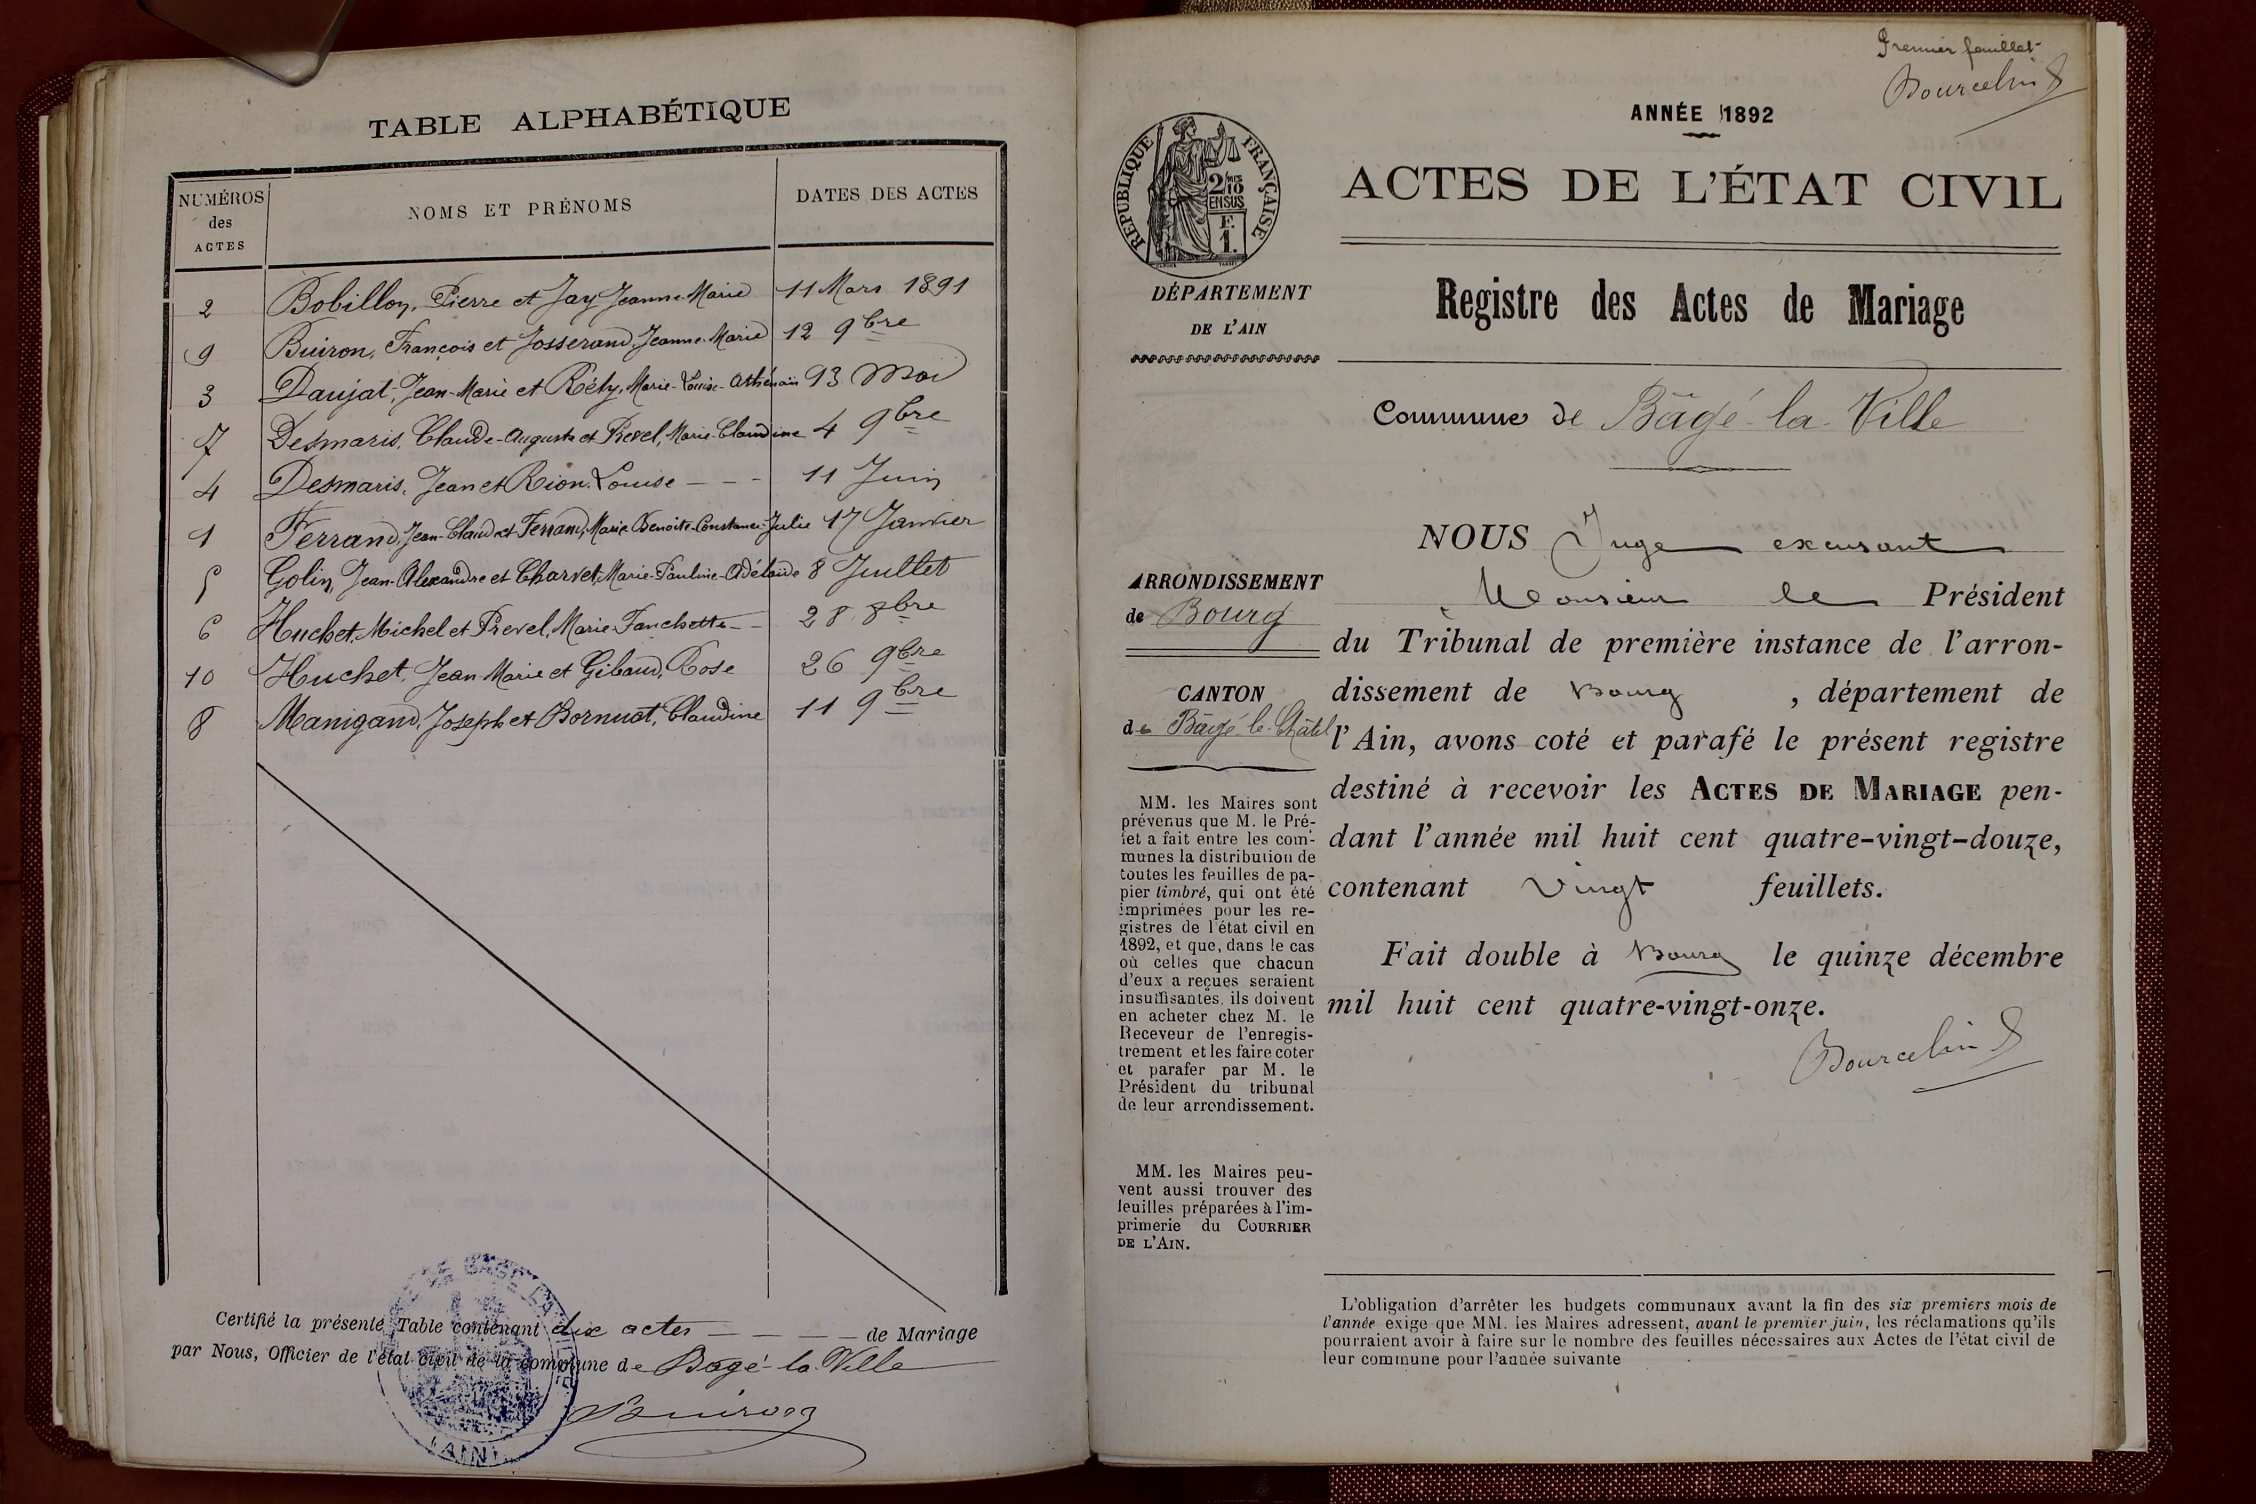 TABLE ALPHABÉTIQUE
NUMÉROS des ACTES
NOMS ET PRÉNOMS
DATES DES ACTES
2 Bobillon, Pierre et Jay Jeanne-Marie 11 Mars 1891
9 Buiron, François et Josserand, Jeanne-Marie 12 9bre
3 Daujat, Jean-Marie et Réty, Marie-Louise- 13 Mai
7 Desmaris, Claude-Auguste et Prevel, Marie-Claudine 4 9bre
4 Desmaris, Jean et Rion Louise - - - 11 Juin
1 Ferrand, Jean-Claude et Ferrand, Marie Benoite-Constance-Julie 17 Janvier
5 Golin, Jean-Alexandre et Charvet, Marie-Pauline-Adélaïde 8 Juillet
6 Huchet, Michel et Prevel, Marie-Fanchette - - 28 8bre
10 Huchet, Jean Marie et Gibaud, Rose 26 9bre
8 Manigand, Joseph et Bornuat, Claudine 11 9bre
Certifié la présente Table contenant dix actes — — — — de Mariage
par Nous, Officier de l'état civil de la commune de Bagé-la-Ville
Buiron
(AIN)
Premier feuillet
Bourcelin
ANNÉE 1892
RÉPUBLIQUE FRANÇAISE
2/10 mes
EN SUS
F.
1.
ACTES DE L'ÉTAT CIVIL
DÉPARTEMENT
DE L'AIN
Registre des Actes de Mariage
Commune de Bâgé-la-Ville
ARRONDISSEMENT
de Bourg
CANTON
de Bâgé-le-Châtel
MM. les Maires sont
prévenus que M. le Pré-
fet a fait entre les com-
munes la distribution de
toutes les feuilles de pa-
pier timbré, qui ont été
imprimées pour les re-
gistres de l'état civil en
1892, et que, dans le cas
où celles que chacun
d'eux a reçues seraient
insuffisantes, ils doivent
en acheter chez M. le
Receveur de l'enregis-
trement et les faire coter
et parafer par M. le
Président du tribunal
de leur arrondissement.
MM. les Maires peu-
vent aussi trouver des
feuilles préparées à l'im-
primerie du COURRIER
DE L'AIN.
NOUS Juge excusant
Monsieur le Président
du Tribunal de première instance de l'arron-
dissement de Bourg , département de
l'Ain, avons coté et parafé le présent registre
destiné à recevoir les ACTES DE MARIAGE pen-
dant l'année mil huit cent quatre-vingt-douze,
contenant vingt feuillets.
Fait double à Bourg le quinze décembre
mil huit cent quatre-vingt-onze.
Bourcelin
L'obligation d'arrêter les budgets communaux avant la fin des six premiers mois de
l'année exige que MM. les Maires adressent, avant le premier juin, les réclamations qu'ils
pourraient avoir à faire sur le nombre des feuilles nécessaires aux Actes de l'état civil de
leur commune pour l'année suivante